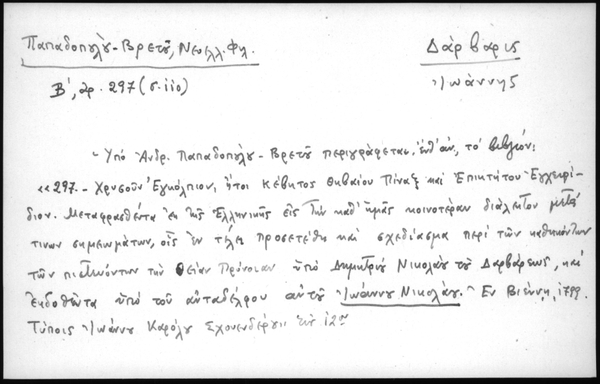 Παπαδοπούλου-Βρετοῦ, Νεοελλ. Φιλ.
Β', ἀρ. 297 (σ. 110)
Δάρβαρις
Ἰωάννης
Ὑπό Ἀνδρ. Παπαδοπούλου-Βρετοῦ περιγράφεται, ἔνθ' ἀν, τό βιβλίον:
«297.- Χρυσοῦν Ἐγκόλπιον, ἤτοι Κέβητος Θηβαίου Πίναξ καί Ἐπικτήτου Ἐγχειρί-
διον. Μεταφρασθέντα ἐκ τῆς Ἑλληνικῆς εἰς τήν καθ' ἡμᾶς κοινοτέραν διάλεκτον μετά
τινων σημειωμάτων, οἷς ἐν τέλει προσετέθη καί σχεδίασμα περί τῶν καθηκόντων
τῶν πιστευόντων τήν Θείαν Πρόνοιαν ὑπό Δημητρίου Νικολάου τοῦ Δαρβάρεως, καί
ἐκδοθέντα ὑπό τοῦ αὐταδέλφου αὐτοῦ Ἰωάννου Νικολάου. Ἐν Βιέννῃ, 1799.
Τύποις Ἰωάννου Καρόλου εἰς 12ον